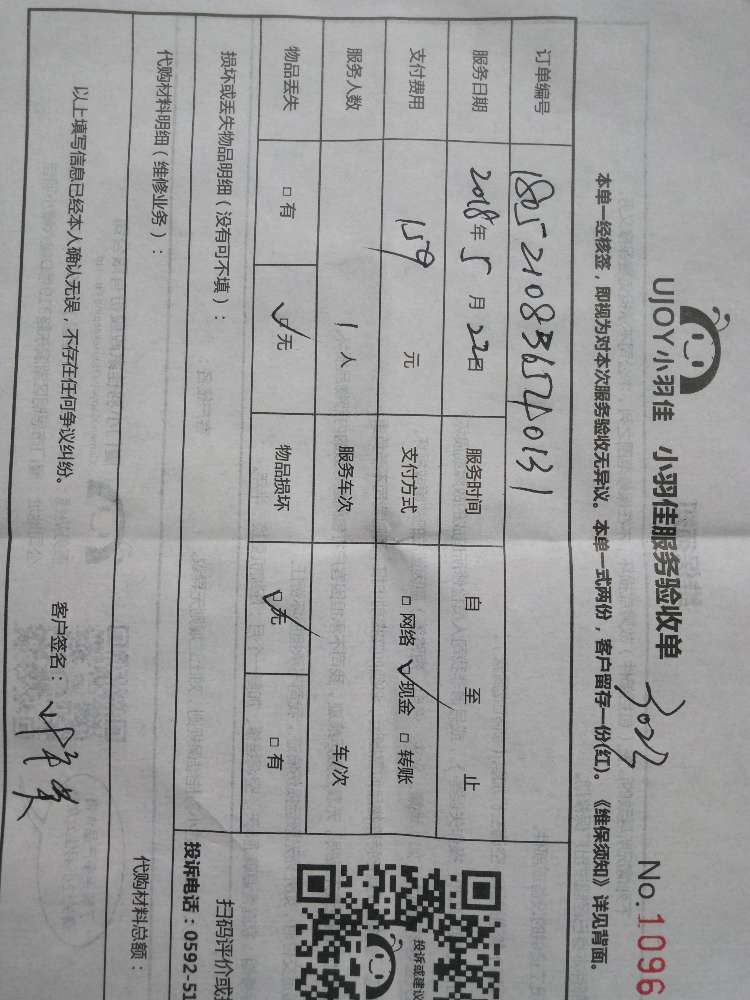 UJOY小羽佳 小羽佳服务验收单
No.1096
本单一经核签，即视为对本次服务验收无异议。本单一式两份，客户留存一份(红)。《维保须知》详见背面。
订单编号
服务日期 2018年5月22日 服务时间 自 至 止
支付费用 150元 支付方式 □网络 ☑现金 □转账
服务人数 1人 服务车次 车/次
物品丢失 □有 ☑无 物品损坏 ☑无 □有
损坏或丢失物品明细（没有可不填）：
代购材料明细（维修业务）：
代购材料总额：
以上填写信息已经本人确认无误，不存在任何争议纠纷。 客户签名：
投诉或建议
扫码评价或
投诉电话：0592-51